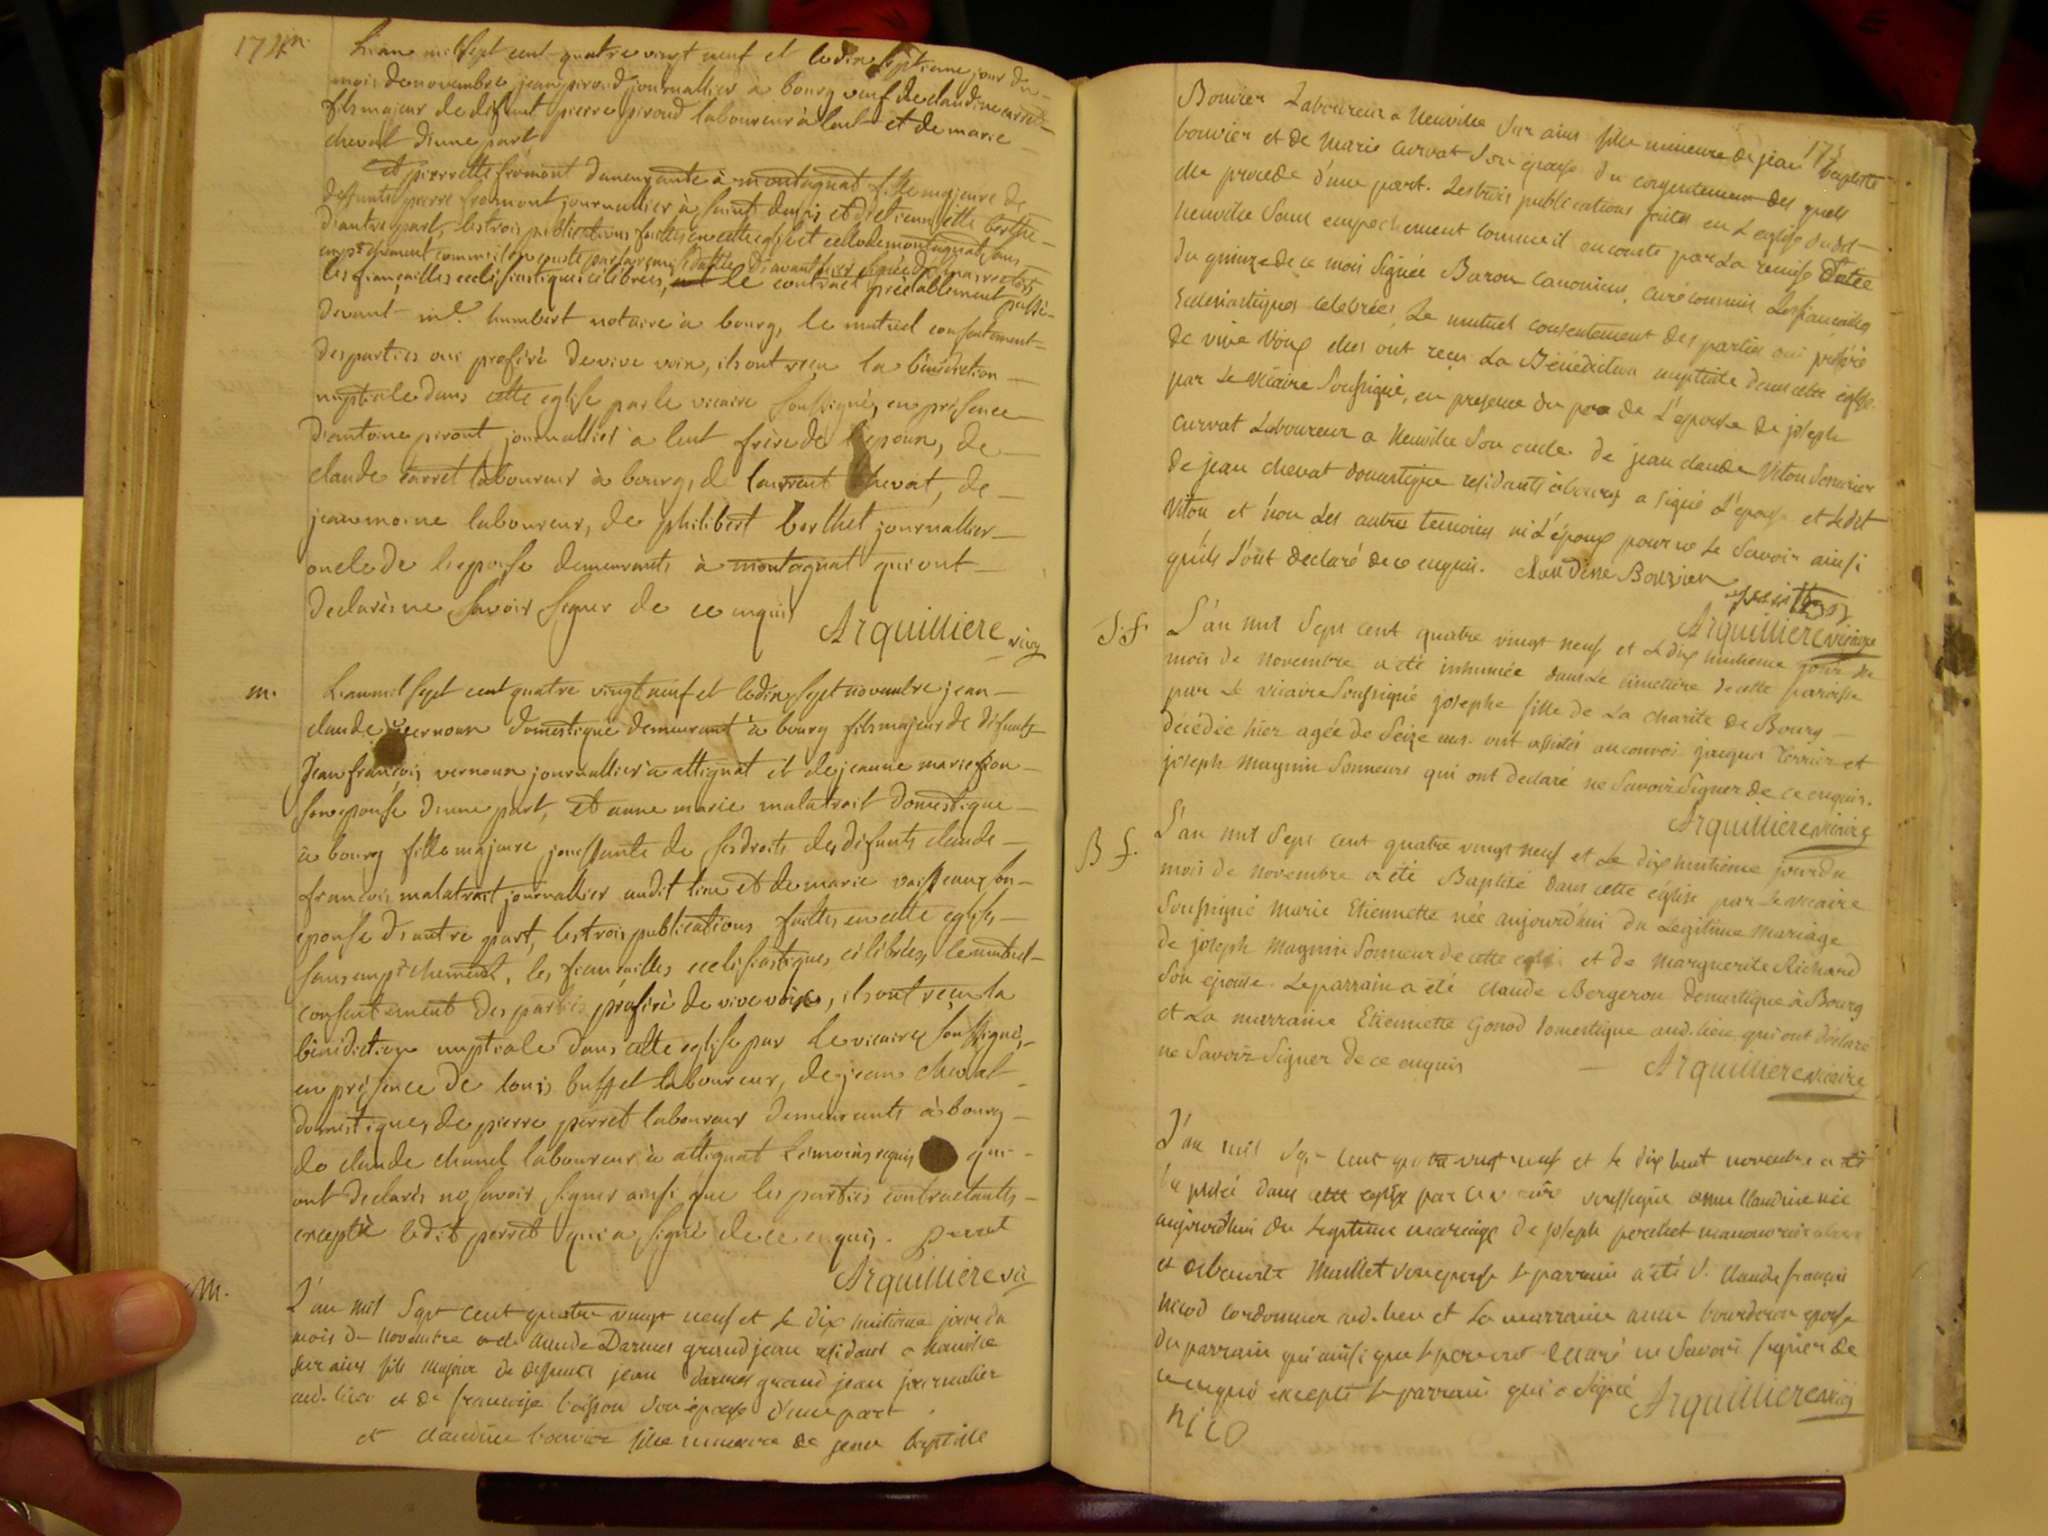 174 m.
L'an mil sept cent quatre vingt neuf et le dix septieme jour du
mois de novembre jean piroud journallier à bourg veuf de claudine carret
fils majeur de défunt pierre piroud laboureur à lent et de marie
chevat d'une part
et pierrette fromont demeurante à montagnat fille majeure de
deffunts pierre fromont journallier à saint denis et d'etiennette berthet
d'autre part, les trois publications faittes en cette eglise et celle de montagnat sans
empêchement comme il en conste par la remise dattée d'avant hier signée
les fiançailles ecclésiastiques célébrées, le contract préalablement passé
devant me. humbert notaire à bourg, le mutuel consentement
des parties oui proféré de vive voix, ils ont reçu la bénédiction
nuptiale dans cette eglise par le vicaire soussigné, en présence
d'antoine piront journallier à lent frère de l'epoux, de
claude carret laboureur à bourg, d laurent chevat, de
jean moine laboureur, de philibert berthet journallier
oncle de l'epouse demeurants à montagnat qui ont
déclarés ne savoir signer de ce enquis
Arquilliere vic
m. L'an mil sept cent quatre vingt neuf et le dix sept novembre jean
claude vernoux domestique demeurant à bourg fils majeur de défunts
Jean françois vernoux journallier à attignat et de jeanne marie
son epouse d'une part, et anne marie malatrait domestique
à bourg fille majeure jouissante de ses droits des défunts claude
françois malatrait journallier audit lieu et de marie vaisseaux son
epouse d'autre part, les trois publications faittes en cette eglise
sans empêchement, les fiancailles ecclésiastiques célébrées, le mutuel
consentement des parties proféré de vive voix, ils ont reçu la
bénédiction nuptiale dans cette eglise par le vicaire soussigné,
en présence de louis buffet laboureur, de jean chevat
domestique, de pierre perret laboureur demeurants à bourg
de claude chanel laboureur à attignat témoins requis qui
ont declarés ne savoir signer ainsi que les parties contractantes
excepté ledit perret qui a signé de ce enquis. perret
Arquilliere vic
M. L'an mil sept cent quatre vingt neuf et le dix huitieme jour du
mois de novembre claude Darmes grand jean résidant a neuville
sur ains fils majeur de deffunts jean darmes grand jean journalier
aud. lieu et de françoise buisson son épouse d'une part
et claudine bouvier fille mineure de jean baptiste
175
Bouvier Laboureur a Neuville sur ains fille mineure de jean baptiste
bouvier et de Marie curvat son épouse du consentement des quels
elle procede d'une part. Les trois publications faites en L'eglise dudit
neuville sans empechement comme il en conste par La remise datée
du quinze de ce mois signée Baron canonicus, curé commis Les fiançailles
Eclesiastiques celebrées, Le mutuel consentement des parties oui proféré
de vive voix elles ont reçu La Bénédiction nuptiale dans cette eglise
par Le vicaire soussigné, en presence du pere de L'epouse de joseph
curvat Laboureur a Neuville son oncle de jean claude Viton sonnier
de jean chevat domestique residants à bourg a signé L'epouse et Ledit
Viton et non Les autres temoins ni L'époux pour ne Le savoir ainsi
qu'ils L'ont declaré de ce enquis. Claudine Bouvier
Arquilliere vicaire
S. f. L'an mil Sept cent quatre vingt neuf et Le dix huitieme jour du
mois de novembre a été inhumée dans Le cimetière de cette paroisse
par Le vicaire soussigné josephe fille de La charité de Bourg
décédée hier agée de Seize ans. ont assistés au convoi jacques Terrier et
joseph Magnin Sonneurs qui ont declaré ne Savoir Signer de ce enquis.
Arquilliere vicaire
B f. L'an mil Sept cent quatre vingt neuf et Le dix huitième jour du
mois de novembre a été Baptisé dans cette eglise par Le vicaire
soussigné Marie Etiennette née aujourd'hui du Legitime Mariage
de joseph Magnin Sonneur de cette eglise et de Marguerite Richard
Son épouse. Le parrain a été claude Bergeron domestique à Bourg
et La marraine Etiennette Gonod domestique aud. lieu qui ont déclaré
ne Savoir Signer de ce enquis
Arquilliere vicaire
L'an mil Sept cent quatre vingt neuf et Le dix huit novembre a été
baptisé dans cette eglise par Le soussigné anne claudine née
aujourd'hui du Legitime mariage de joseph perchet
et Mallet son epouse Le parrain a été S. claude françois
Nicod cordonnier aud. lieu et La marraine anne bourdron epouse
du parrain qui ainsi que Le pere ont declaré ne Savoir signer de
ce enquis excepté Le parrain qui a signé Arquilliere vicaire
NICO